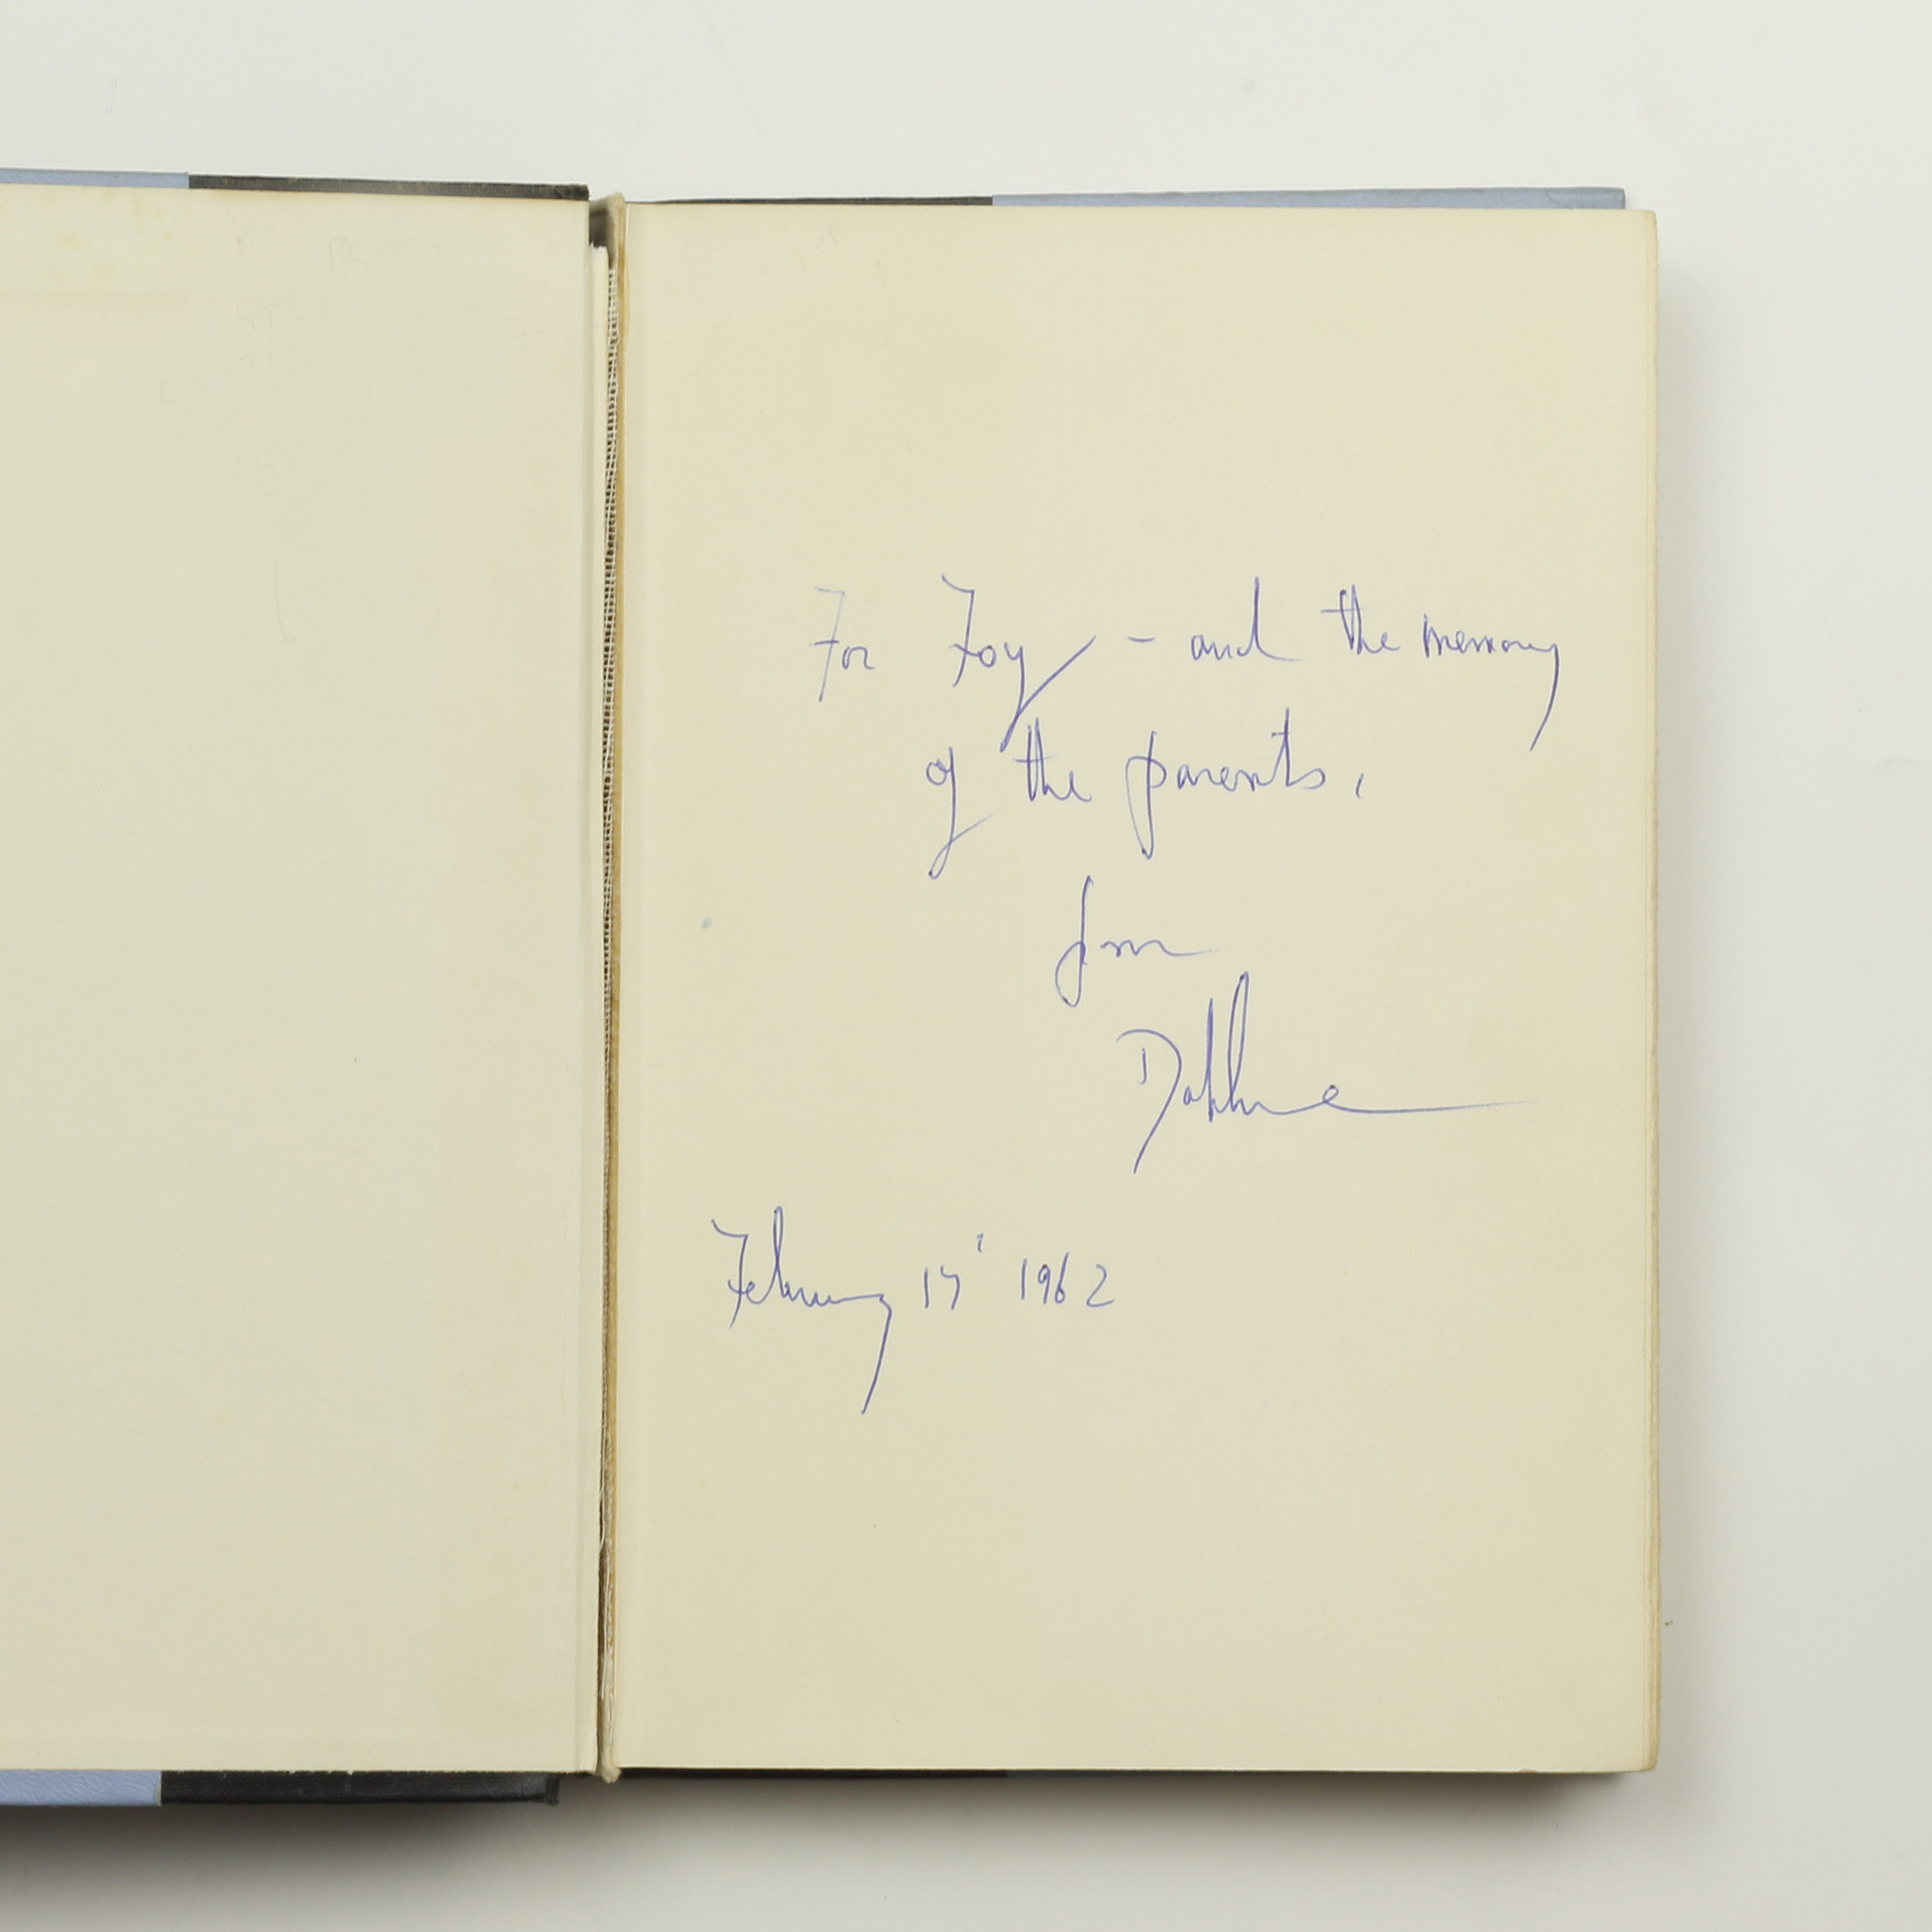 For Foy - and the memory
of the parents,
from
Daphne
February 17' 1962